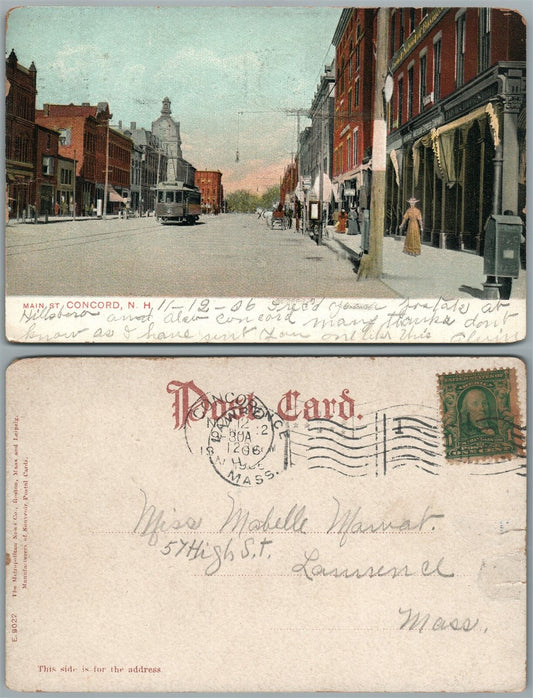 MAIN ST. CONCORD, N. H. 11-12-06 Rrec'd your postals at
Hillsboro and also Concord many thanks don't
know as I have sent you one like this
Post Card.
CONCORD
N.H.
LAWRENCE
MASS.
12
1906
Miss Mabelle Mawat.
57 High St.
Lawrence
Mass.
This side is for the address.
The Metropolitan News Co., Boston, Mass. and Leipzig.
Manufacturers of Souvenir Postal Cards.
E. 9022